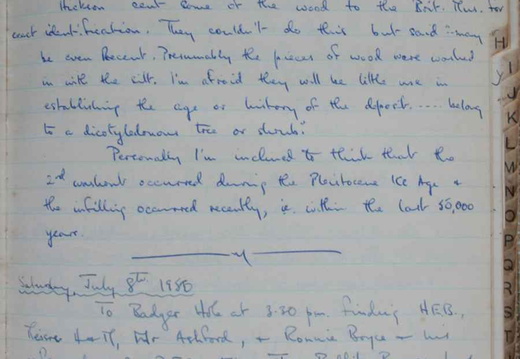 Hickson sent some of the wood to the Brit. Mus. for
exact identification. They couldn't do this but said "may
be even Recent. Presumably the pieces of wood were washed
in with the silt. I'm afraid they will be little use in
establishing the age or history of the deposit..... belong
to a dicotyledonous tree or shrub."
Personally I'm inclined to think that the
2nd washout occurred during the Pleistocene Ice Age &
the infilling occurred recently, i.e. within the last 50,000
years.
Saturday, July 8th 1950
To Badger Hole at 3.30 pm. finding H.E.B.,
Mr Ashford, & Ronnie Boyce & his
H
I
J
K
L
M
N
O
P
Q
R
S
T